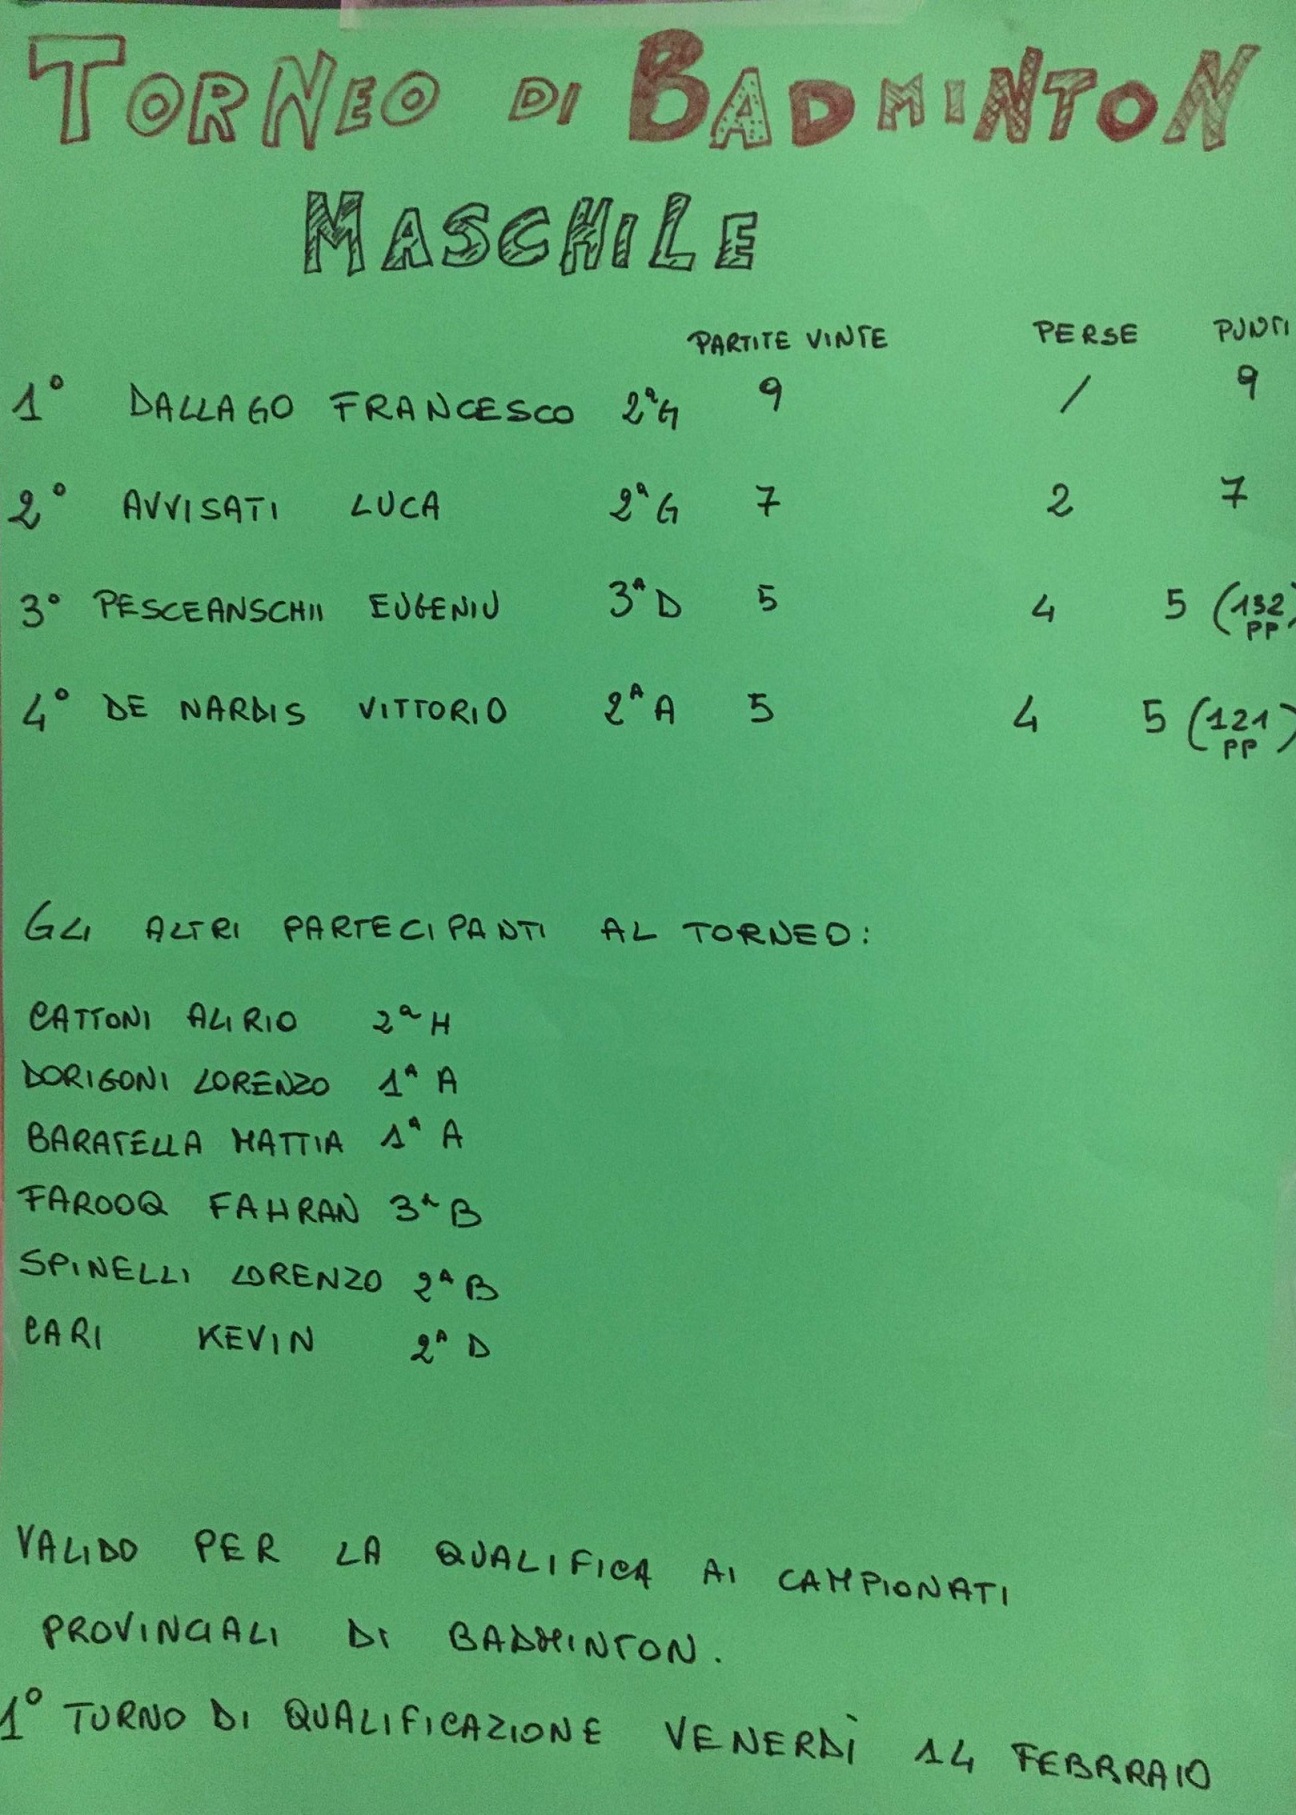 TORNEO DI BADMINTON
MASCHILE
PARTITE VINTE PERSE PUNTI
1° DALLAGO FRANCESCO 2ªG 9 / 9
2° AVVISATI LUCA 2ªG 7 2 7
3° PESCEANSCHII EUGENIU 3ªD 5 4 5 (132 PP)
4° DE NARDIS VITTORIO 2ªA 5 4 5 (121 PP)
GLI ALTRI PARTECIPANTI AL TORNEO:
CATTONI ALIRIO 2ªH
DORIGONI LORENZO 1ª A
BARATELLA MATTIA 1ª A
FAROOQ FAHRAN 3ªB
SPINELLI LORENZO 2ªB
CARI KEVIN 2ª D
VALIDO PER LA QUALIFICA AI CAMPIONATI
PROVINCIALI DI BADMINTON.
1° TURNO DI QUALIFICAZIONE VENERDÌ 14 FEBBRAIO